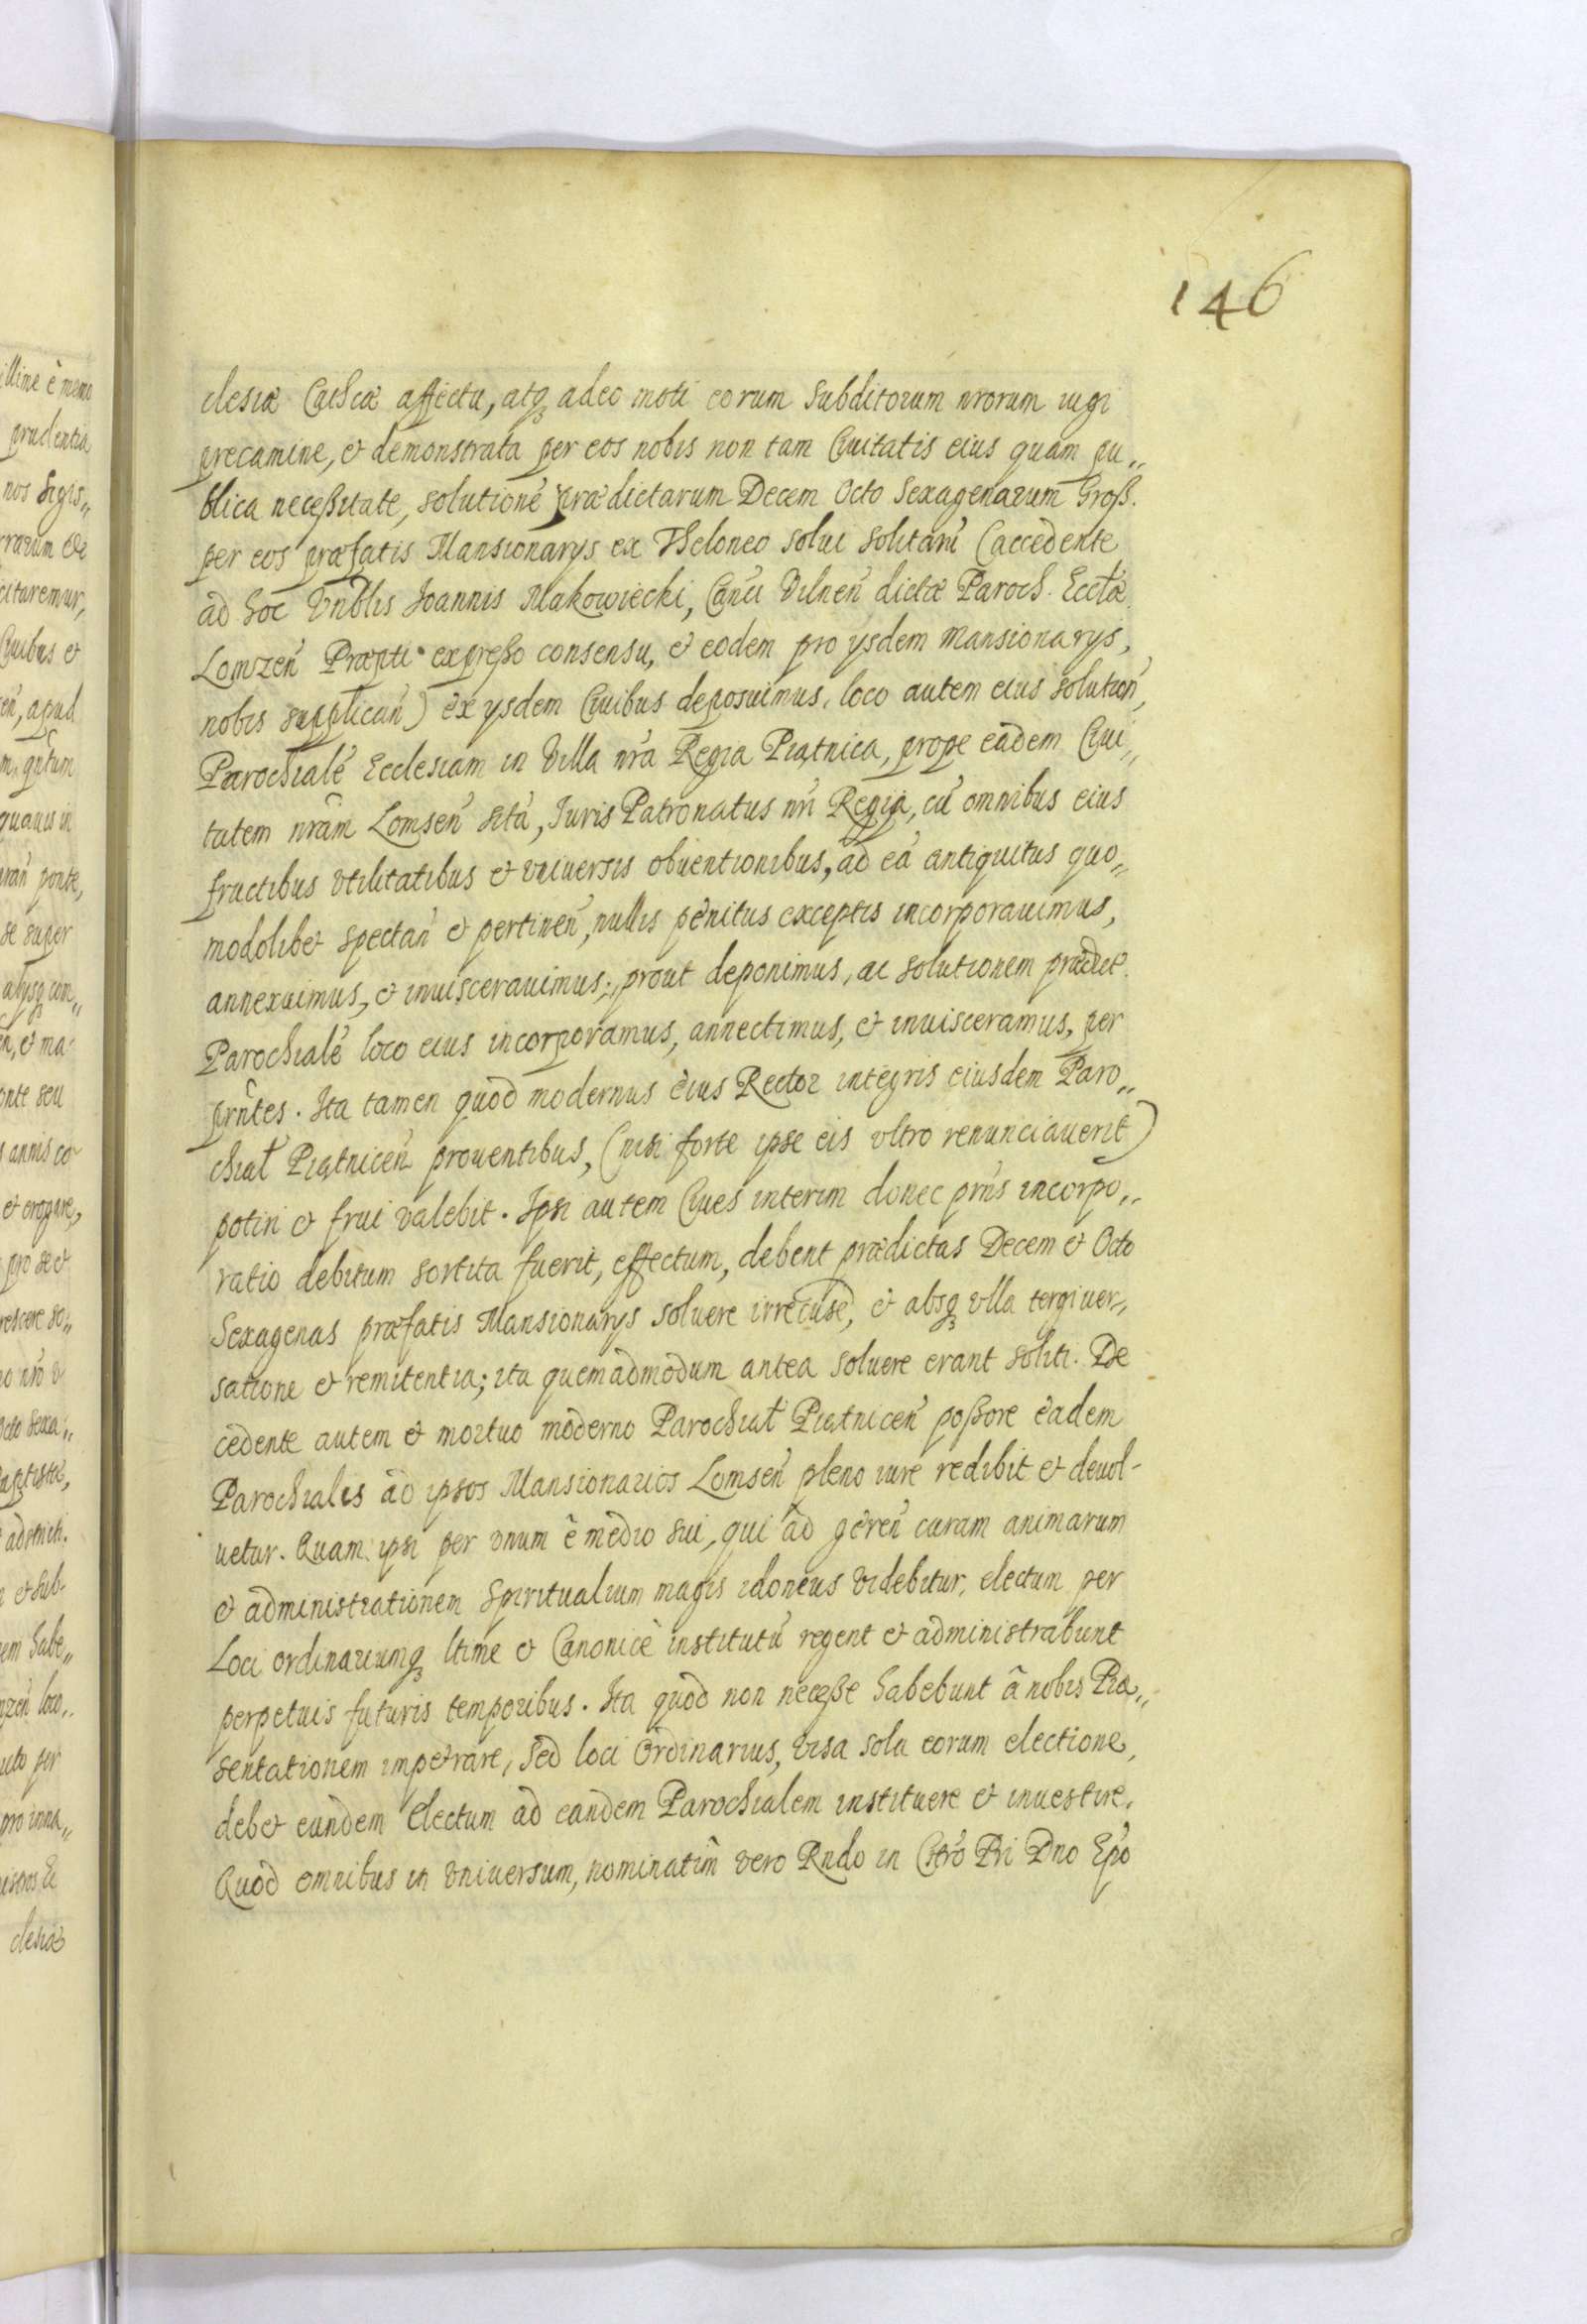 146
clesiæ Cathcæ affectu, atq adeo moti eorum Subditorum nrorum iugi
precamine, et demonstrata per eos nobis non tam Ciuitatis eius quam pu„
blica neceßitate, solutionẽ prædictarum Decem Octo Sexagenarum Groß.
per eos præfatis Mansionarys ex Theloneo solui solitarũ (accedente
ad hoc Vnblis Joannis Makowiecki, Canci Vilneñ dictæ Paroch. Ecctæ
Lomzeñ Præpti expreßo consensu, et eodem pro ysdem Mansionarys,
nobis supplicañ) ex ysdem Ciuibus deposuimus, loco autem eius solutioñ,
Parochialẽ Ecclesiam in Villa nrã Regia Piątnica, prope eãdem Ciui„
tatem nrãm Lomseñ sitã, Iuris Patronatus nri Regij, cũ omnibus eius
fructibus vtilitatibus et vniuersis obuentionibus, ad eã antiquitus quo„
modolibet spectañ et pertineñ, nullis penitus exceptis incorporauimus,
annexuimus, et inuiscerauimus; prout deponimus, ac solutionem prædict.
Parochialẽ loco eius incorporamus, annectimus, et inuisceramus, per
prñtes. Ita tamen quod modernus eius Rector integris eiusdem Paro„
chial Piątniceñ prouentibus, (nisi forte ipse eis vltro renunciauerit)
potiri et frui valebit. Ipsi autem Ciues interim donec prñs incorpo„
ratio debitum sortita fuerit, effectum, debent prædictas Decem et Octo
Sexagenas præfatis Mansionarys soluere irrecusẽ, et absq vlla tergiuer„
satione et remitentia; ita quemadmodum antea soluere erant soliti. De
cedente autem et mortuo moderno Parochial Piątniceñ poßore eadem
Parochialis ad ipsos Mansionarios Lomseñ pleno iure redibit et deuol-
uetur. Quam ipsi per vnum è medio sui, qui ad gereñ curam animarum
et administrationem Spiritualium magis idoneus videbitur, electum per
Loci ordinariumq ltime et Canonicè institutũ regent et administrabunt
perpetuis futuris temporibus. Ita quod non neceße habebunt â nobis Præ„
sentationem impetrare, sed loci Ordinarius, visa sola eorum electione,
debet eundem electum ad eandem Parochialem instituere et inuestire.
Quod omnibus in vniuersum, nominatim vero Rndo in Chrõ Pri Dno Epõ